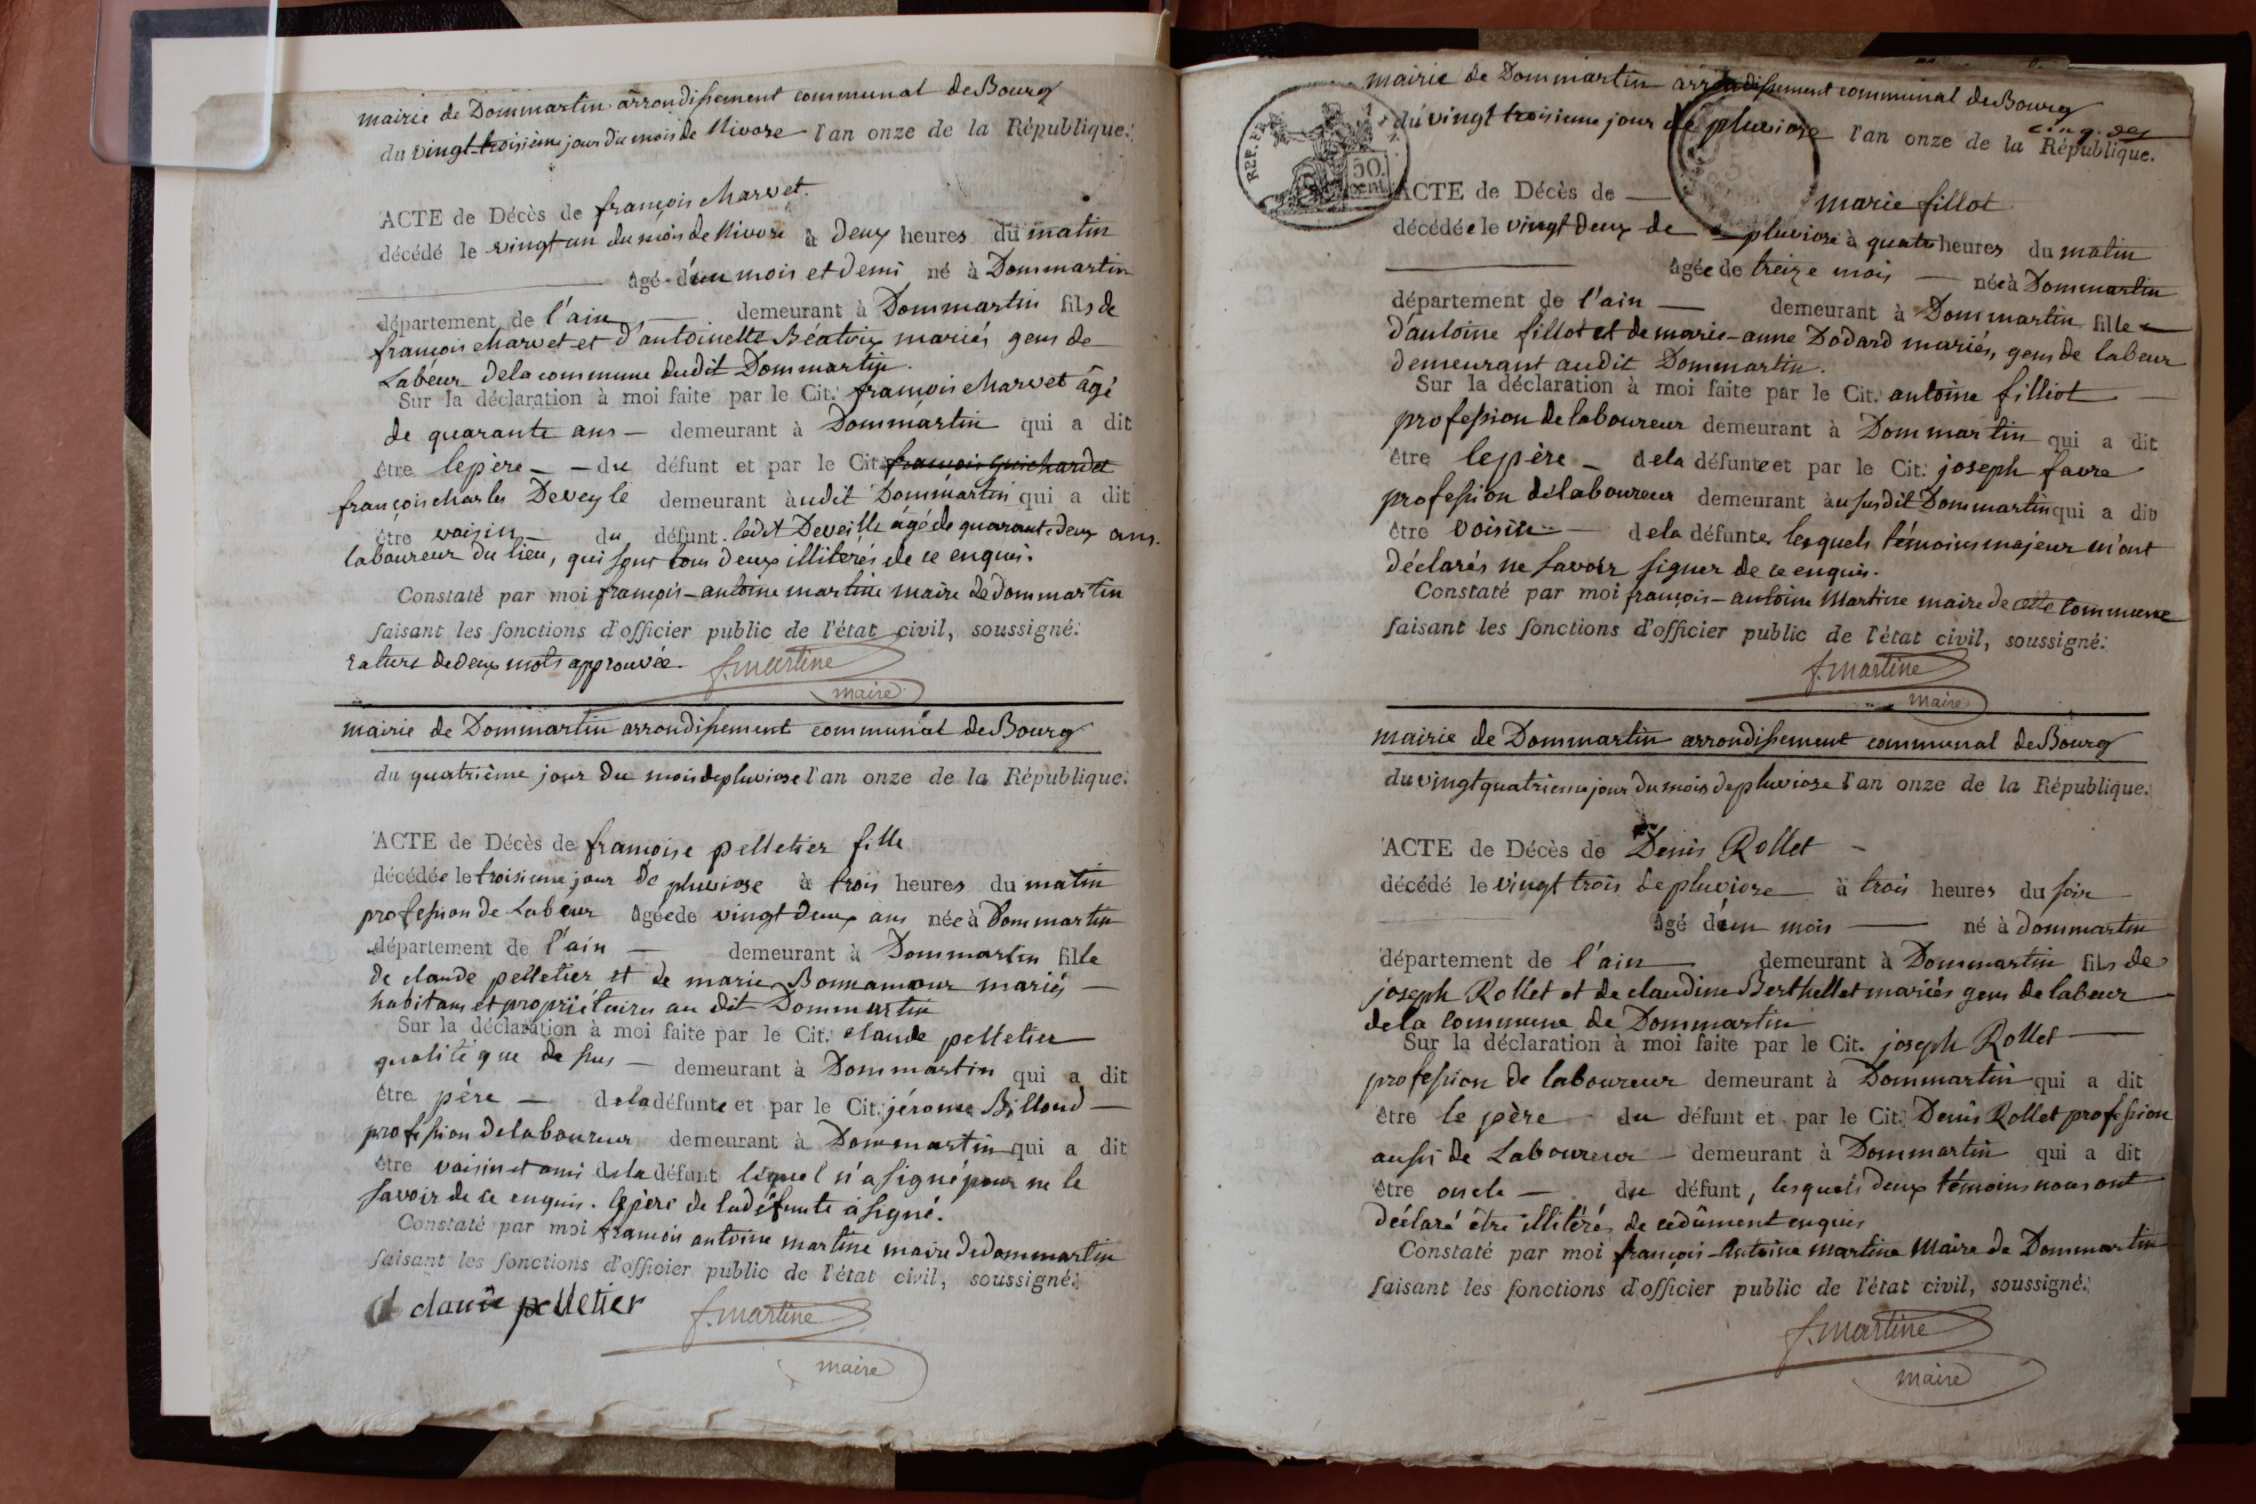 mairie de Dommartin arrondissement communal de Bourg
du vingt-troisième jour du mois de Nivose l'an onze de la République.
ACTE de Décès de françois charvet.
décédé le vingt un du mois de Nivose à deux heures du matin
âgé d'un mois et demi né à Dommartin
département de l'ain demeurant à Dommartin fils de
françois charvet et d'antoinette Béatrix mariés gens de
Labeur de la commune dudit Dommartin.
Sur la déclaration à moi faite par le Cit. françois charvet âgé
de quarante ans demeurant à Dommartin qui a dit
être le père du défunt et par le Cit. françois guichardet
françois charles Deveyle demeurant audit Dommartin qui a dit
être voisin du défunt. ledit Deveille âgé de quarante deux ans.
laboureur du lieu, qui sont tous deux illiterés de ce enquis.
Constaté par moi françois-antoine martine maire de dommartin
faisant les fonctions d'officier public de l'état civil, soussigné.
rature de deux mots approuvée. f. martine
maire
mairie de Dommartin arrondissement communal de Bourg
du quatrième jour du mois de pluviose l'an onze de la République.
ACTE de Décès de françoise pelletier fille
décédée le troisieme jour de pluviose à trois heures du matin
profession de Labeur âgée de vingt deux ans née à Dommartin
département de l'ain demeurant à Dommartin fille
de claude pelletier et de marie Bonnamour mariés
habitans et propriétaires au dit Dommartin
Sur la déclaration à moi faite par le Cit. claude pelletier
qualité que dessus demeurant à Dommartin qui a dit
être père de la défunte et par le Cit. jérome Billoud
profession de laboureur demeurant à Dommartin qui a dit
être voisin et ami de la défunt lequel n'a signé pour ne le
savoir de ce enquis. le père de la défunte a signé.
Constaté par moi françois antoine martine maire de dommartin
faisant les fonctions d'officier public de l'état civil, soussigné.
claude pelletier f. martine
maire
mairie de Dommartin arrondissement communal de Bourg
du vingt troisieme jour de pluviose l'an onze de la République.
REP. FR.
50. cent
ACTE de Décès de marie fillot
décédée le vingt deux de pluviose à quatre heures du matin
âgée de treize mois née à Dommartin
département de l'ain demeurant à Dommartin fille
d'antoine fillot et de marie-anne Dodard mariés, gens de labeur
demeurant audit Dommartin.
Sur la déclaration à moi faite par le Cit. antoine filliot
profession de laboureur demeurant à Dommartin qui a dit
être le père de la défunte et par le Cit. joseph favre
profession de laboureur demeurant au susdit Dommartin qui a dit
être voisin de la défunte, lesquels témoins majeur m'ont
déclarés ne savoir signer de ce enquis.
Constaté par moi françois-antoine Martine maire de cette commune
faisant les fonctions d'officier public de l'état civil, soussigné.
f. martine
maire
mairie de Dommartin arrondissement communal de Bourg
du vingt quatrieme jour du mois de pluviose l'an onze de la République.
ACTE de Décès de Denis Rollet
décédé le vingt trois de pluviose à trois heures du soir
âgé d'un mois né à dommartin
département de l'ain demeurant à Dommartin fils de
joseph Rollet et de claudine Berthellet mariés gens de labeur
de la commune de Dommartin
Sur la déclaration à moi faite par le Cit. joseph Rollet
profession de laboureur demeurant à Dommartin qui a dit
être le père du défunt et par le Cit. Denis Rollet profession
aussi de Laboureur demeurant à Dommartin qui a dit
être oncle du défunt, lesquels deux témoins nous ont
déclaré être illitérés de ce dûment enquis
Constaté par moi françois-Antoine martine Maire de Dommartin
faisant les fonctions d'officier public de l'état civil, soussigné.
f. martine
maire